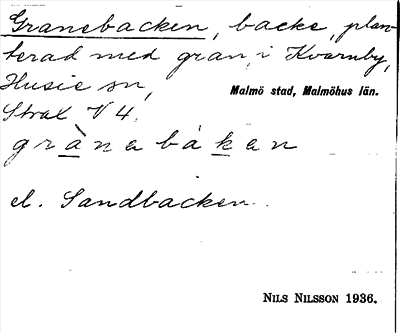 Granebacken, backe, plan-
terad med gran, i Kvarnby,
Husie sn,
Malmö stad, Malmöhus län.
Strax V 4.
grànabákan
el. Sandbacken.
NILS NILSSON 1936.